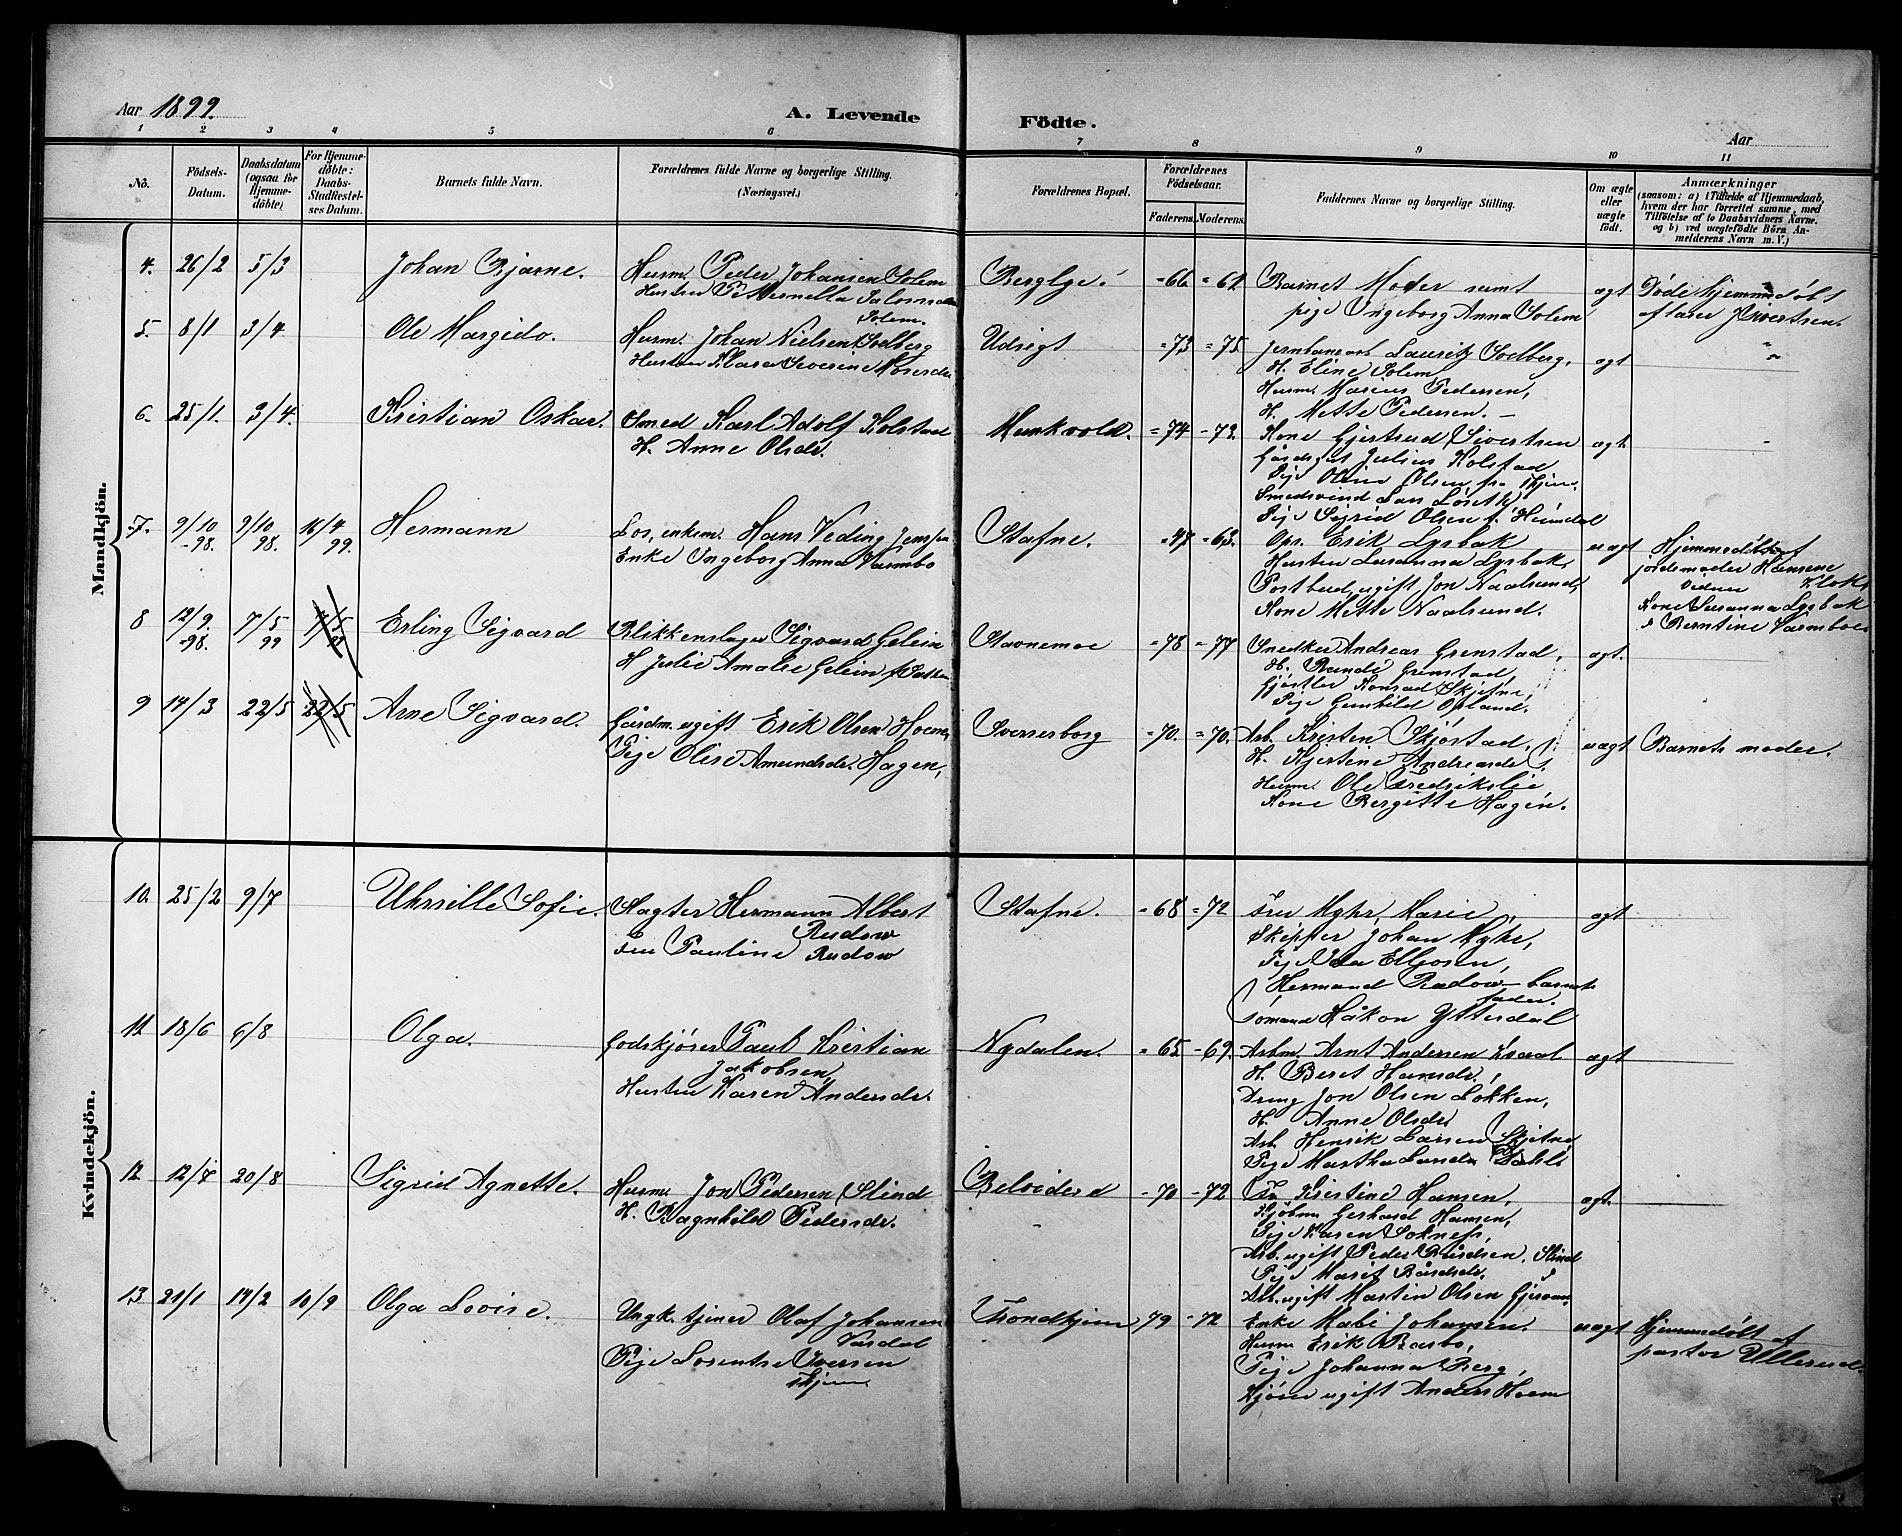 Aar 1899.
A. Levende Födte.
Aar
1 2 3 4 5 6 7 8 9 10 11
No.
Födsels-Datum.
Daabsdatum (ogsaa for Hjemmedöbte)
For Hjemmedöbte: Daabs-Stadfæstelses Datum.
Barnets fulde Navn.
Forældrenes fulde Navne og borgerlige Stilling. (Næringsvei.)
Forældrenes Bopæl.
Forældrenes Födselsaar.
Faderens. Moderens.
Faddernes Navne og borgerlige Stilling.
Om ægte eller uægte født.
Anmærkninger
(saasom: a) i Tilfælde af Hjemmedaab, hvem der har forrettet samme, med Tilföielse af to Daabsvidners Navne, og b) ved uægtefödte Börn Anmelderens Navn m. V.)
Mandkjön.
4. 26/2 5/3 Johan Bjarne. Husm. Peder Johansen Solem
Hustru Petternella Salomonsdr Solem.
Berglye. -66 -61 Barnet Moder samt
pige Ingeborg Anna Solem
ægt Døde hjemmedøbt
af lærer Sivertsen.
5. 8/1 3/4 Ole Margido. Husm. Johan Nielsen Solberg
Hustru Klara Severine
Udsigt -73 -75 Jernbanearb Lauritz Solberg,
H. Eline Solem
Husm. Marius Pedersen,
H. Mette Pedersen. -
ægt "
6. 25/1. 3/4. Kristian Oskar. Smed Karl Adolf Kolstad
H. Anne Olsdr.
Munkvold. -74 -73 Kone Gjertrud Sivertsen
Julius Kolstad
Pige Oline Olsen
Lars
Pige Sigrid Olsen f. Heimdal
ægt. -
7. 9/10 -98. 9/10 98. 16/4 99. Hermann Los, enkem. Hans Veding Jenssen
Enke Ingeborg Anna Varmbo
Stafne. -47 -63. Opr. Erik Lysbak
Hustru Susanna Lysbak,
Postbud, ugift Jon Naalsund,
Kone Mette Naalsund.
uægt Hjemmedøbt af
jordemoder Hansine
Vidner
Kone Susanna Lysbak
Berntine Varmboe
8 12/9. -98. 7/5 99 7/5 99 Erling Sigvard Blikkenslager Sigvard Gelein
H. Julie Amalie Gelein
Stavnemoe -78 -77 Snedker Andreas Grenstad,
H. Randi Grenstad,
Gjørtler Konrad Skjefne,
Pige Gunhild Opland.
ægt.
9 14/3 22/5 22/5 Arne Sigvard. Gaardm. ugift Erik Olsen Hoem,
Pige Olise Amundsdr. Hagen,
Sverresborg -70. -70. Arb. Kristen Skjøstad,
H. Kjerstine Andreasdr,
Husm. Ole Fredrikslie,
Kone Bergitte Hagen.
uægt Barnets moder.
Kvindekjön.
10. 25/2 9/7 Sofie. Slagter Hermann Albert
Rudow
Fru Pauline Rudow
Stafne. -68 -72 Fru Myhr, Marie,
Skipper Johan Myhr,
Pige
Hermand Rudow - barnets
fader.
Sømand Håkon Ytterdal
ægt
11. 18/6 6/8 Olga. Godskjører Paul Kristian
Jakobsen,
Hustru Karen Andersdr.
Nydalen. -65 -69. Arbm. Arnt Andersen
H. Beret Hansdr,
Dreng Jon Olsen Løkken,
H. Anne Olsdr
Arb. Henrik Larsen Skjetne
Pige Martha Larsdr
ægt
12. 12/7 20/8 Sigrid Agnette. Husm Jon Pedersen Slind
H. Ragnhild Pedersdr.
Belvidere -70 -72 Fr. Kristine Hansen,
Kjøbm Gerhard Hansen,
Pige Karen Soknes,
Arb. ugift Peder Bårdsen, Slind
Pige Marit Bårdsdr,
Arb. ugift Martin Olsen
ægt.
13. 21/1 19/2 10/9 Olga Lovise. Ungk. tjener Olaf Johansen
Værdal
Pige Lorentse Iversen
Trondhjem 79 -72 Enke Johansen.
Husm Erik Barbo,
Pige Johanna Berg,
Kjører ugift Anders Hoem
uægt Hjemmedøbt af
pastor Ullerud.